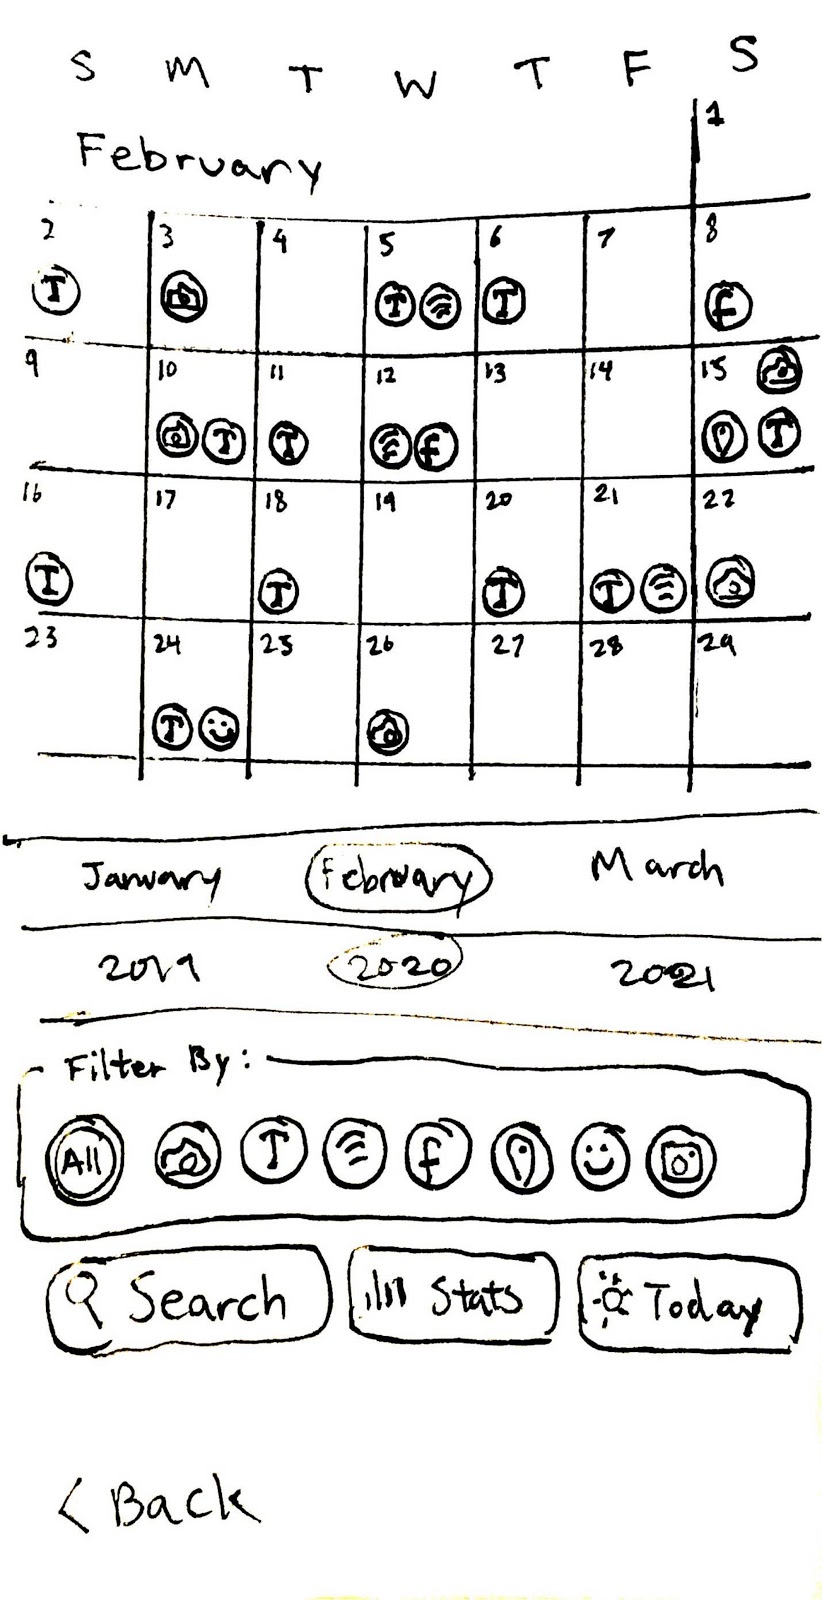 S M T W T F S
February
1
2 3 4 5 6 7 8
T T T f
9 10 11 12 13 14 15
T T f T
16 17 18 19 20 21 22
T T T T
23 24 25 26 27 28 29
T
January February March
2019 2020 2021
Filter By:
All T f
Search Stats Today
< Back